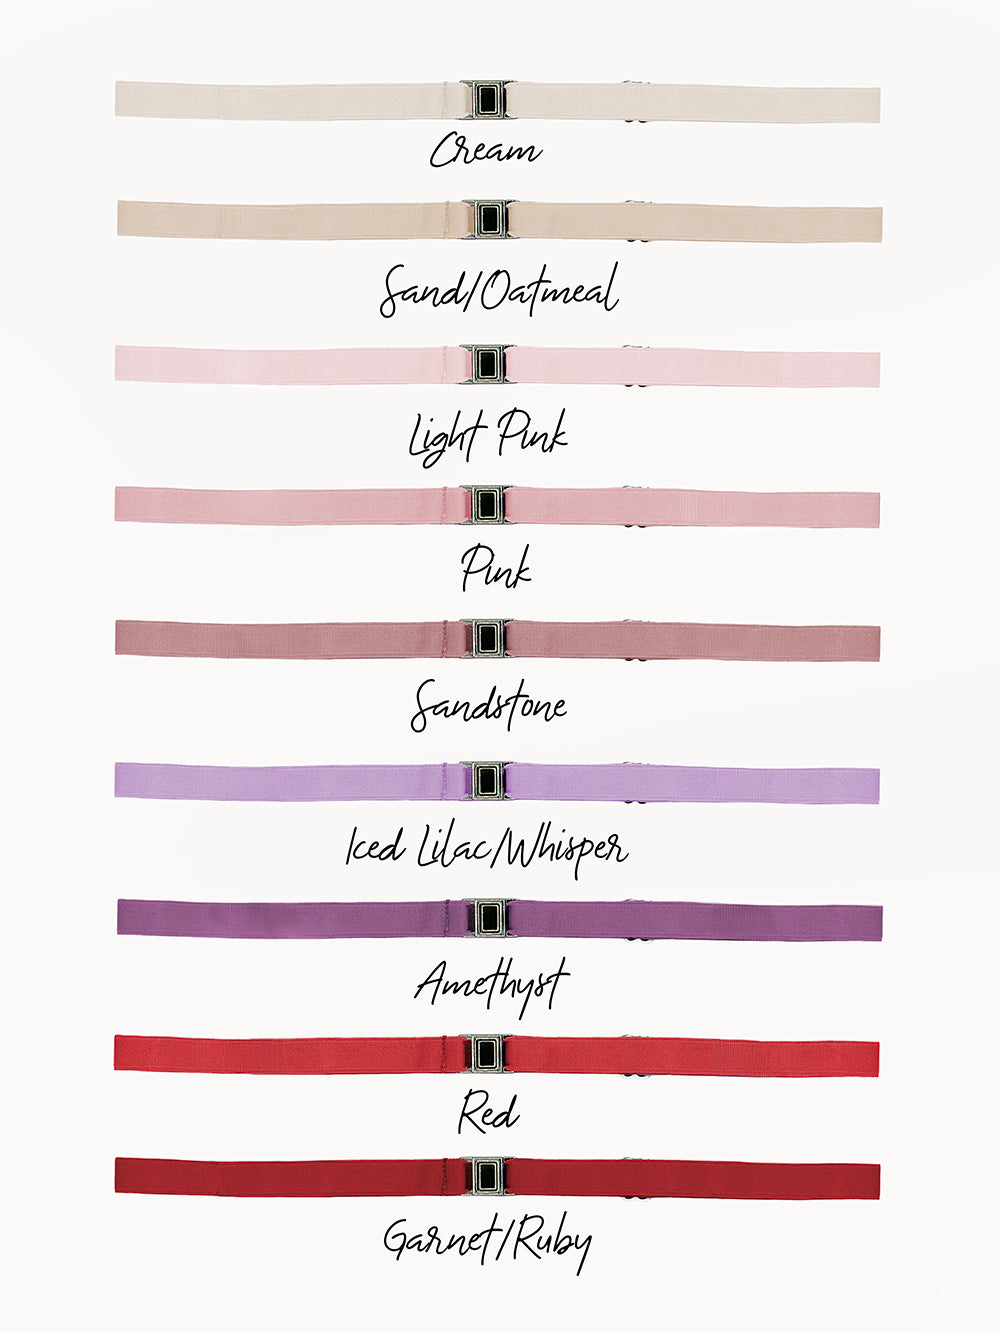 Cream
Sand/Oatmeal
Light Pink
Pink
Sandstone
Iced Lilac/Whisper
Amethyst
Red
Garnet/Ruby